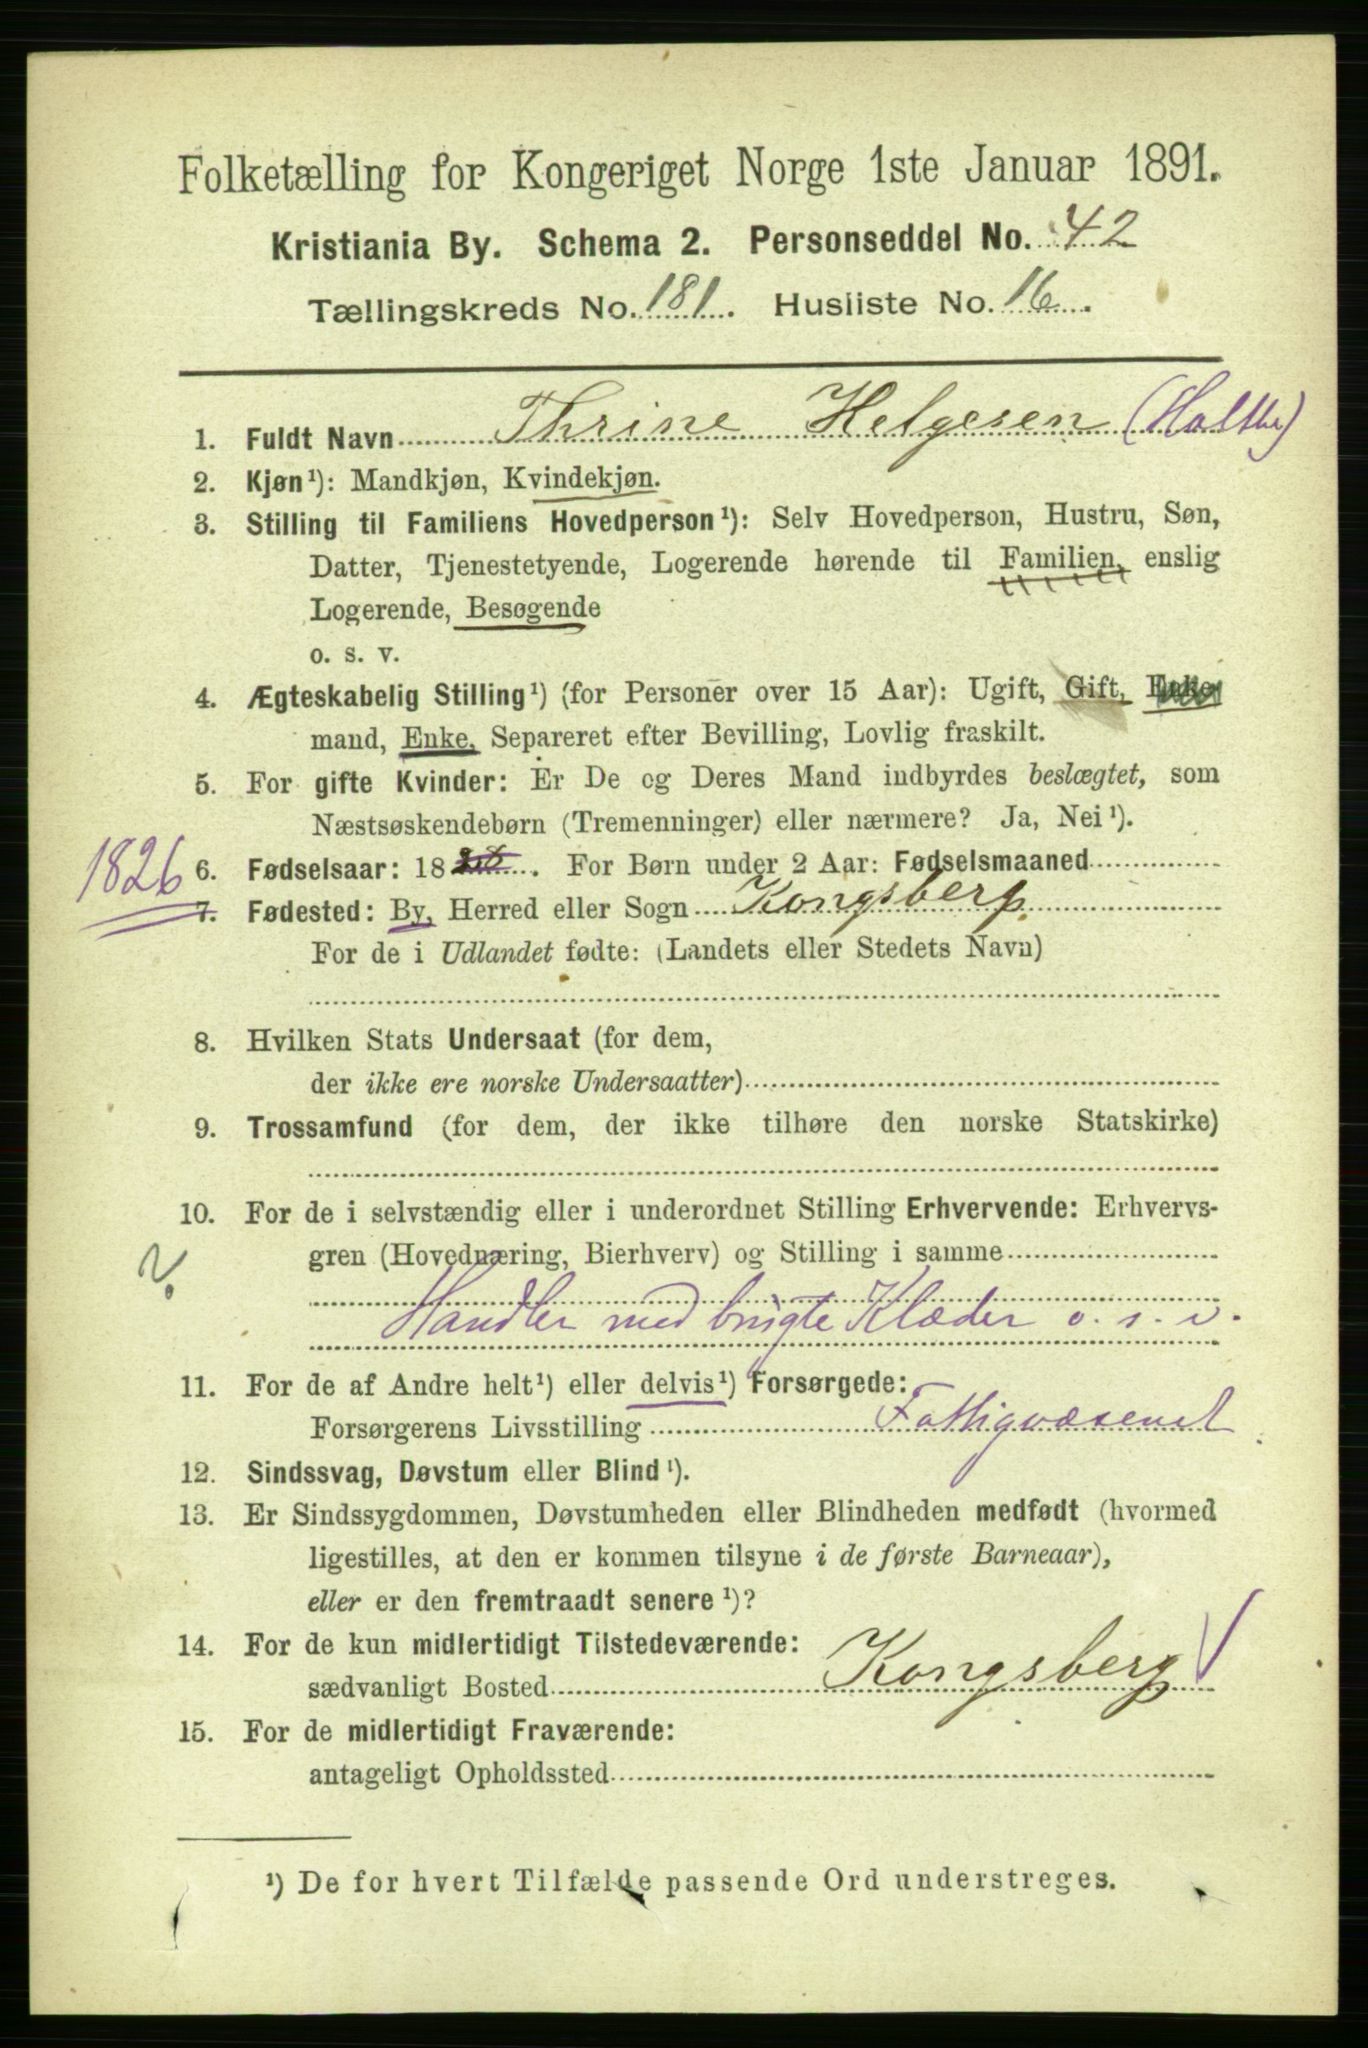 Folketælling for Kongeriget Norge 1ste Januar 1891.
Kristiania By. Schema 2. Personseddel No. 42
Tællingskreds No. 181. Husliste No. 16.
1. Fuldt Navn Thrine Helgesen
2. Kjøn¹): Mandkjøn, Kvindekjøn.
3. Stilling til Familiens Hovedperson¹): Selv Hovedperson, Hustru, Søn,
Datter, Tjenestetyende, Logerende hørende til Familien, enslig
Logerende, Besøgende
o. s. v.
4. Ægteskabelig Stilling¹) (for Personer over 15 Aar): Ugift, Gift, Enke-
mand, Enke, Separeret efter Bevilling, Lovlig fraskilt.
5. For gifte Kvinder: Er De og Deres Mand indbyrdes beslægtet, som
Næstsøskendebørn (Tremenninger) eller nærmere? Ja, Nei¹).
1826 6. Fødselsaar: 18 . For Børn under 2 Aar: Fødselsmaaned
7. Fødested: By, Herred eller Sogn Kongsberg
For de i Udlandet fødte: (Landets eller Stedets Navn)
8. Hvilken Stats Undersaat (for dem,
der ikke ere norske Undersaatter)
9. Trossamfund (for dem, der ikke tilhøre den norske Statskirke)
10. For de i selvstændig eller i underordnet Stilling Erhvervende: Erhvervs-
gren (Hovednæring, Bierhverv) og Stilling i samme
Handler med brugte Klæder o. s. v.
11. For de af Andre helt¹) eller delvis¹) Forsørgede:
Forsørgerens Livsstilling Fattigvæsenet
12. Sindssvag, Døvstum eller Blind¹).
13. Er Sindssygdommen, Døvstumheden eller Blindheden medfødt (hvormed
ligestilles, at den er kommen tilsyne i de første Barneaar),
eller er den fremtraadt senere¹)?
14. For de kun midlertidigt Tilstedeværende:
sædvanligt Bosted Kongsberg
15. For de midlertidigt Fraværende:
antageligt Opholdssted
¹) De for hvert Tilfælde passende Ord understreges.